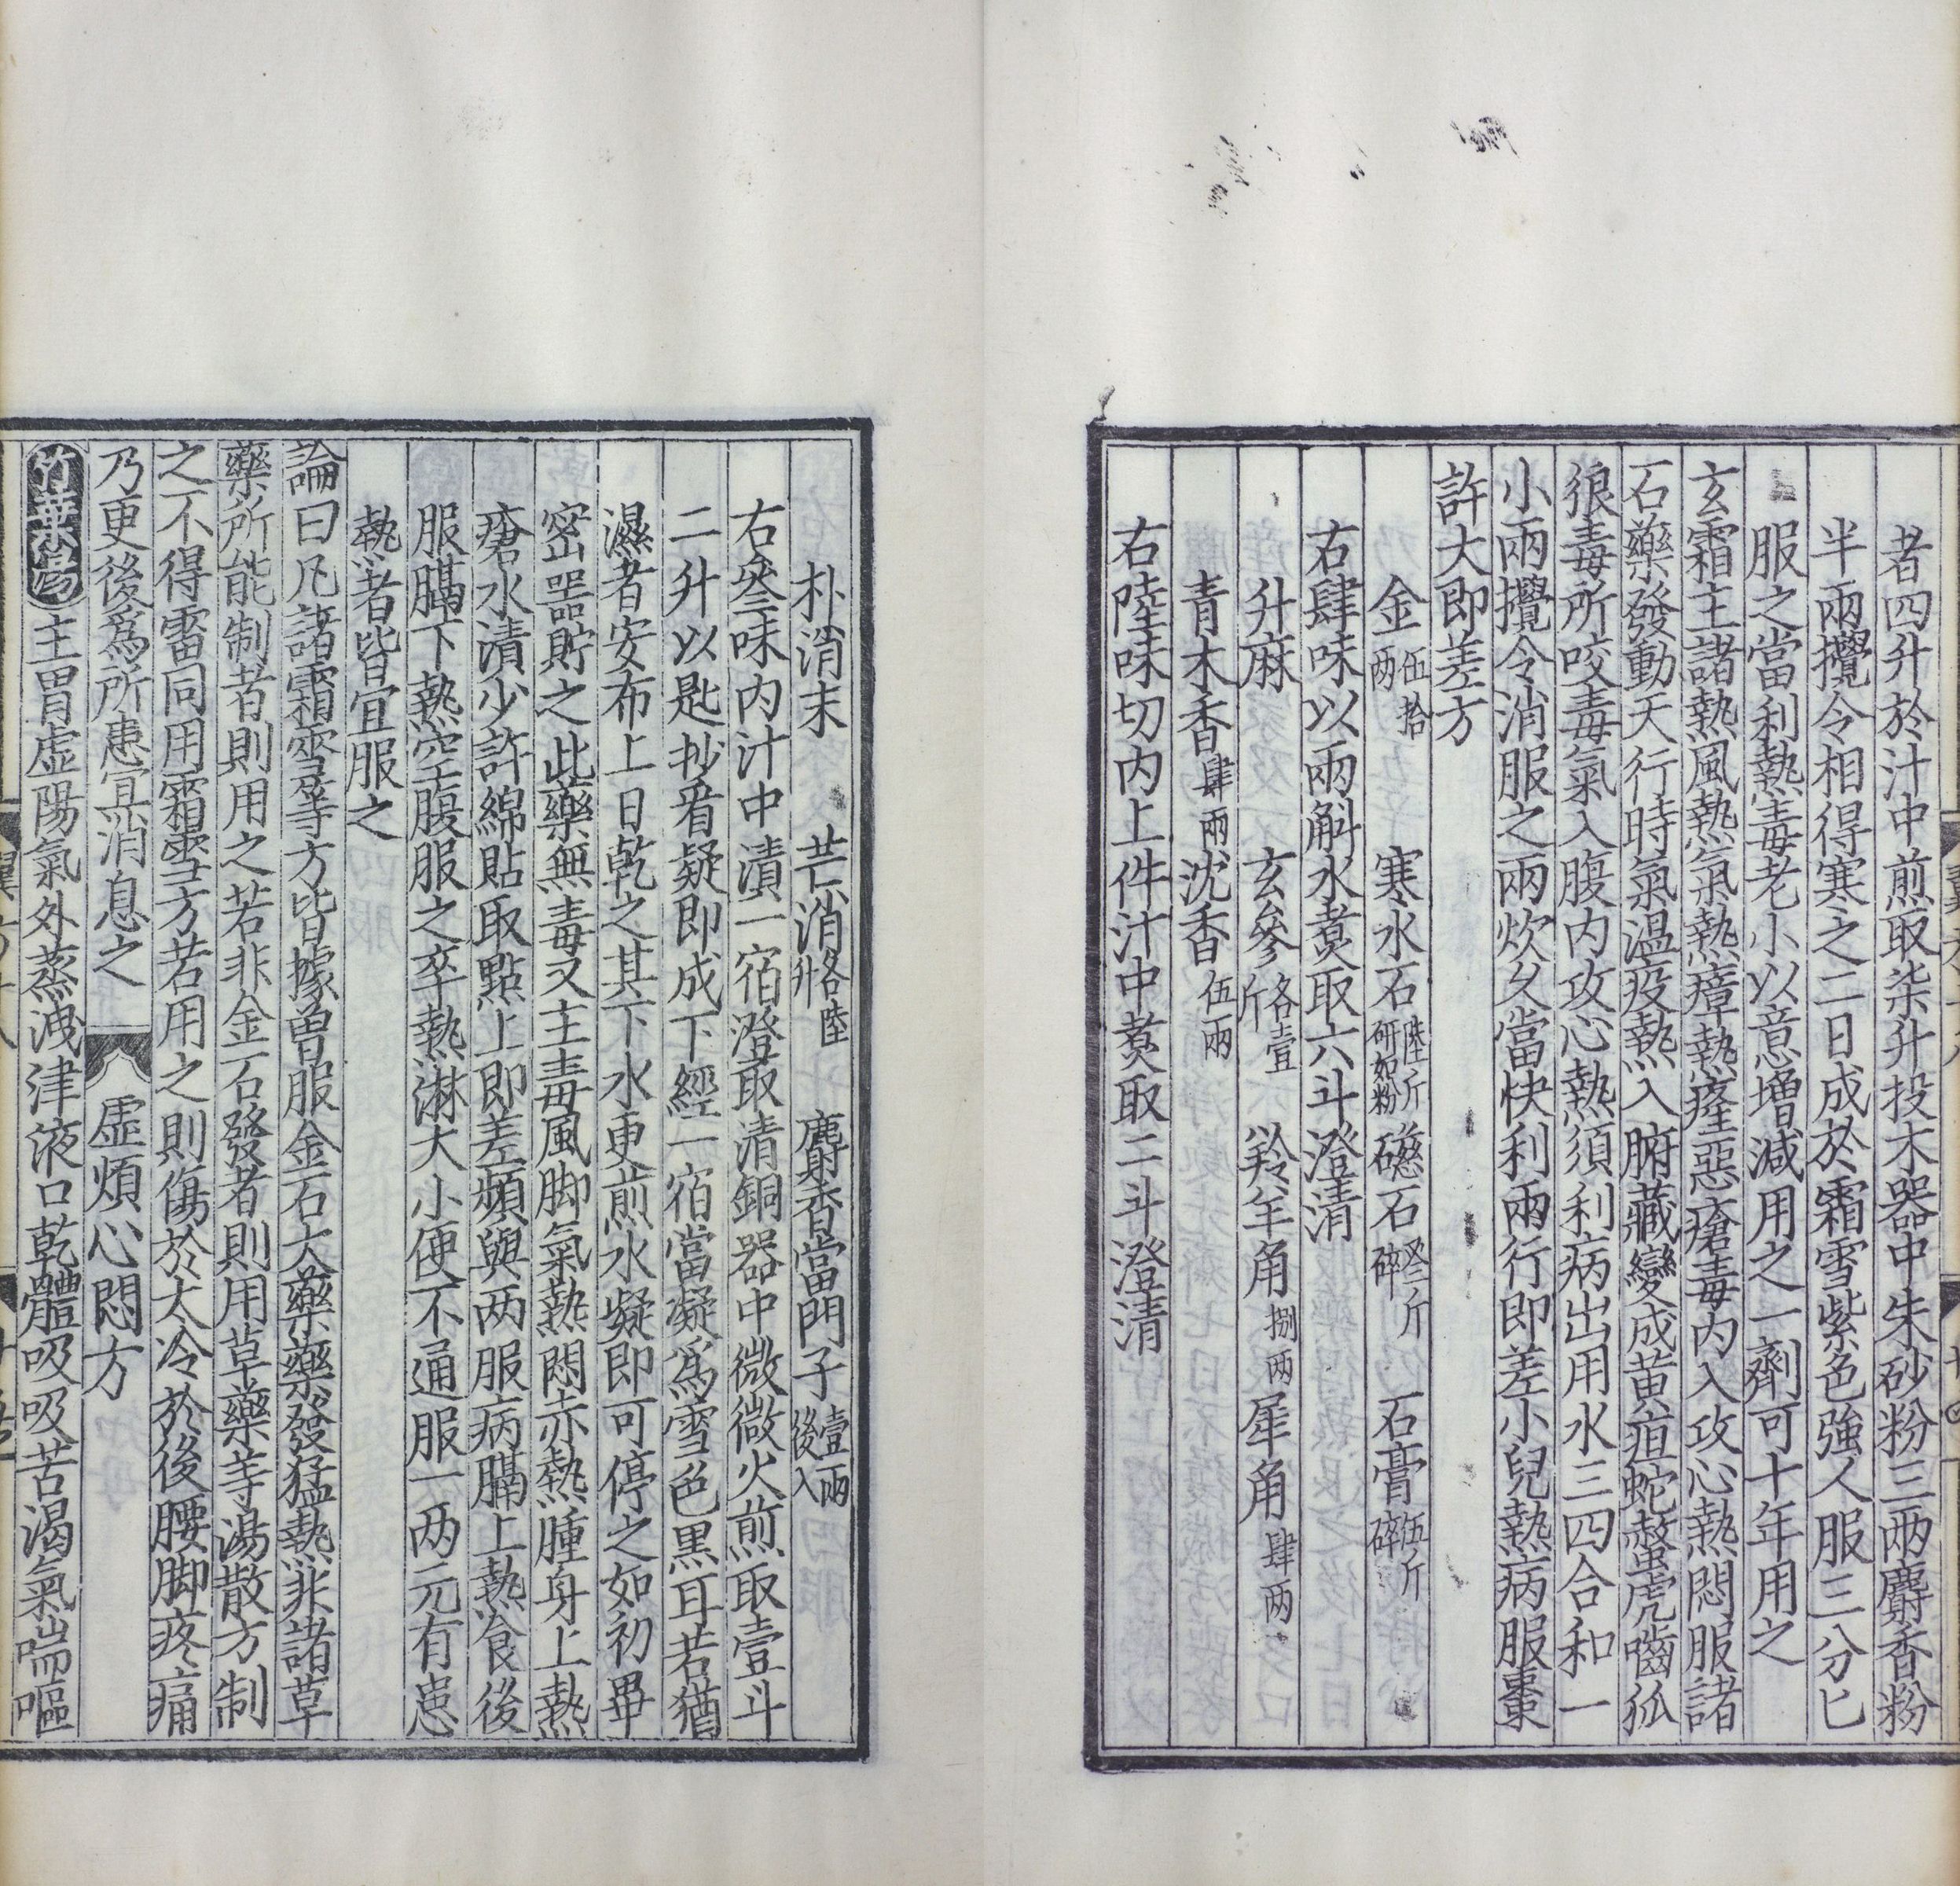 者四升於汁中煎取柒升投木器中朱砂粉三兩麝香粉
半兩攪令相得寒之二日成於霜雪紫色強人服三分匕
服之當利熱毒老小以意增減用之一劑可十年用之
玄霜主諸熱風熱氣熱瘴熱癊惡瘡毒內入攻心熱悶服諸
石藥發動天行時氣溫疫熱入腑藏變成黄疸蛇螫虎嚙狐
狼毒所咬毒氣入腹内攻心熱須利病出用水三四合和一
小兩攪令消服之兩炊久當快利兩行即差小兒熱病服棗
許大即差方
金伍拾两 寒水石陸斤研如粉 磁石叄斤碎 石膏伍斤碎
右肆味以兩斛水煑取六斗澄清
升麻 玄參各壹斤 羚羊角捌两 犀角肆两
青木香肆兩 沈香伍兩
右陸味切内上件汁中煑取二斗澄清
朴消末 芒消各陸升 麝香當門子壹兩後入
右叄味内汁中漬一宿澄取清銅器中微微火煎取壹斗
二升以匙抄看疑即成下經一宿當凝爲雪色黒耳若猶
濕者安布上日乾之其下水更煎水凝即可停之如初畢
密器貯之此藥無毒又主毒風脚氣熱悶赤熱腫身上熱
瘡水漬少許綿貼取點上即差頻與两服病膈上熱飡後
服膈下熱空腹服之卒熱淋大小便不通服一两元有患
熱者皆宜服之
論曰凡諸霜雪等方皆據曽服金石大藥藥發猛熱非諸草
藥所能制者則用之若非金石發者則用草藥等湯散方制
之不得雷同用霜雪方若用之則傷於太冷於後腰脚疼痛
乃更後爲所患冝消息之 虚煩心悶方
竹葉湯主胃虚陽氣外蒸洩津液口乾體吸吸苦渴氣喘嘔